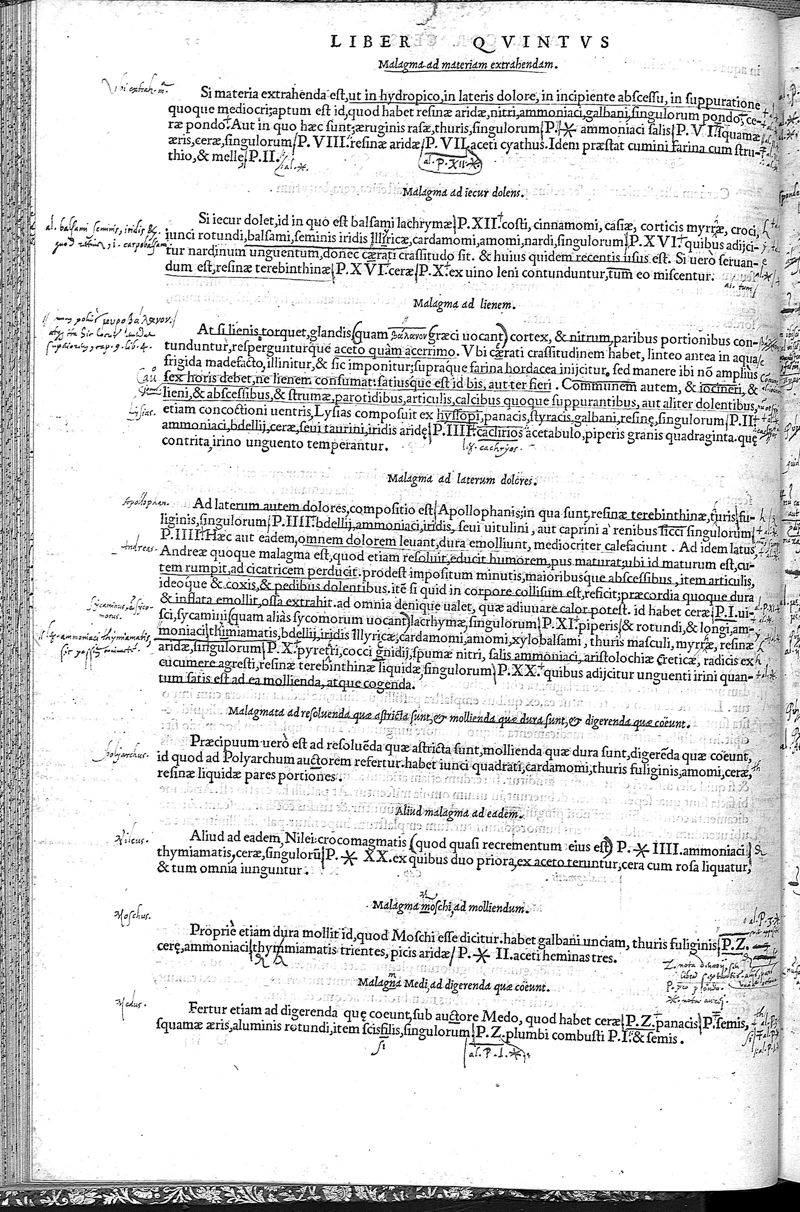 LIBER QVINTVS
Malagma ad materiam extrahendam.
Si materia extrahenda est, ut in hydropico, in lateris dolore, in incipiente abscessu, in suppuratione
quoque mediocri; aptum est id, quod habet resinæ aridæ, nitri, ammoniaci, galbani, singulorum pondo, ce-
ræ pondo. Aut in quo hæc sunt; æruginis rasæ, thuris, singulorum P. ✶ ammoniaci salis P. VI. squamæ
æris, ceræ, singulorum P. VIII. resinæ aridæ P. VII. aceti cyathus. Idem præstat cumini farina cum stru-
thio, & melle P. II.
al. P. XII. ✶
Malagma ad iecur dolens.
Si iecur dolet, id in quo est balsami lachrymæ P. XII. costi, cinnamomi, casiæ, corticis myrræ, croci,
iunci rotundi, balsami, seminis iridis Illyricæ, cardamomi, amomi, nardi, singulorum P. XVI. quibus adijci-
tur nardinum unguentum, donec cærati crassitudo sit. & huius quidem recentis usus est. Si uero seruan-
dum est, resinæ terebinthinæ P. XVI. ceræ P. X. ex uino leni contunduntur, tum eo miscentur.
al. tum
Malagma ad lienem.
At si lienis torquet, glandis (quam βάλανον Græci uocant) cortex, & nitrum, paribus portionibus con-
tunduntur, respergunturque aceto quàm acerrimo. Vbi cærati crassitudinem habet, linteo antea in aqua
frigida madefacto, illinitur, & sic imponitur; supraque farina hordacea inijcitur. sed manere ibi nō amplius
sex horis debet, ne lienem consumat: satiusque est id bis, aut ter fieri. Communem autem, & iocineri, &
lieni, & abscessibus, & strumæ, parotidibus, articulis, calcibus quoque suppurantibus, aut aliter dolentibus,
Lisias.
etiam concoctioni uentris, Lysias composuit ex hyssopi, panacis, styracis, galbani, resinę, singulorum P. II.
ammoniaci, bdellij, ceræ, seui taurini, iridis aridę P. IIII. caclirios acetabulo, piperis granis quadraginta. quę
contrita, irino unguento temperantur.
Malagma ad laterum dolores.
Apollophan.
Ad laterum autem dolores, compositio est Apollophanis; in qua sunt, resinæ terebinthinæ, thuris fu-
liginis, singulorum P. IIII. bdellij, ammoniaci, iridis, seui uitulini, aut caprini a' renibus sicci singulorum
P. IIII. Hæc aut eadem, omnem dolorem leuant, dura emolliunt, mediocriter calefaciunt. Ad idem latus,
Andreas.
Andreæ quoque malagma est, quod etiam resoluit, educit humorem, pus maturat; ubi id maturum est, cu-
tem rumpit, ad cicatricem perducit. prodest impositum minutis, maioribusque abscessibus, item articulis,
ideoque & coxis, & pedibus dolentibus. itē si quid in corpore collisum est, reficit; præcordia quoque dura
& inflata emollit, ossa extrahit. ad omnia denique ualet, quæ adiuuare calor potest. id habet ceræ P. I. ui-
sci, sycamini (quam aliàs sycomorum uocant) lachrymæ, singulorum P. XI. piperis & rotundi, & longi, am-
moniaci thimiamatis, bdellij, iridis Illyricæ, cardamomi, amomi, xylobalsami, thuris masculi, myrræ, resinæ
aridæ, singulorum P. X. pyretri, cocci gnidij, spumæ nitri, salis ammoniaci, aristolochiæ Creticæ, radicis ex
cucumere agresti, resinæ terebinthinæ liquidæ, singulorum P. XX. quibus adijcitur unguenti irini quan-
tum satis est ad ea mollienda, atque cogenda.
Malagmata ad resoluenda quæ astricta sunt, & mollienda quæ dura sunt, & digerenda quæ coëunt.
Polyarchus.
Præcipuum uerò est ad resoluēda quæ astricta sunt, mollienda quæ dura sunt, digerēda quæ coëunt,
id quod ad Polyarchum auctorem refertur. habet iunci quadrati, cardamomi, thuris fuliginis, amomi, ceræ,
resinæ liquidæ pares portiones.
Aliud malagma ad eadem.
Nileus.
Aliud ad eadem, Nilei: crocomagmatis (quod quasi recrementum eius est) P. ✶ IIII. ammoniaci
thymiamatis, ceræ, singulorū P. ✶ XX. ex quibus duo priora, ex aceto teruntur, cera cum rosa liquatur,
& tum omnia iunguntur.
Malagma moschi, ad molliendum.
Moschus.
Propriè etiam dura mollit id, quod Moschi esse dicitur. habet galbani unciam, thuris fuliginis P. Z.
cerę, ammoniaci thymmiamatis trientes, picis aridæ P. ✶ II. aceti heminas tres.
Malagma Medi, ad digerenda quæ coëunt.
Medus.
Fertur etiam ad digerenda quę coeunt, sub auctore Medo, quod habet ceræ P. Z. panacis P. semis,
squamæ æris, aluminis rotundi, item scissilis, singulorum P. Z. plumbi combusti P. I. & semis.
al. P. I. ✶